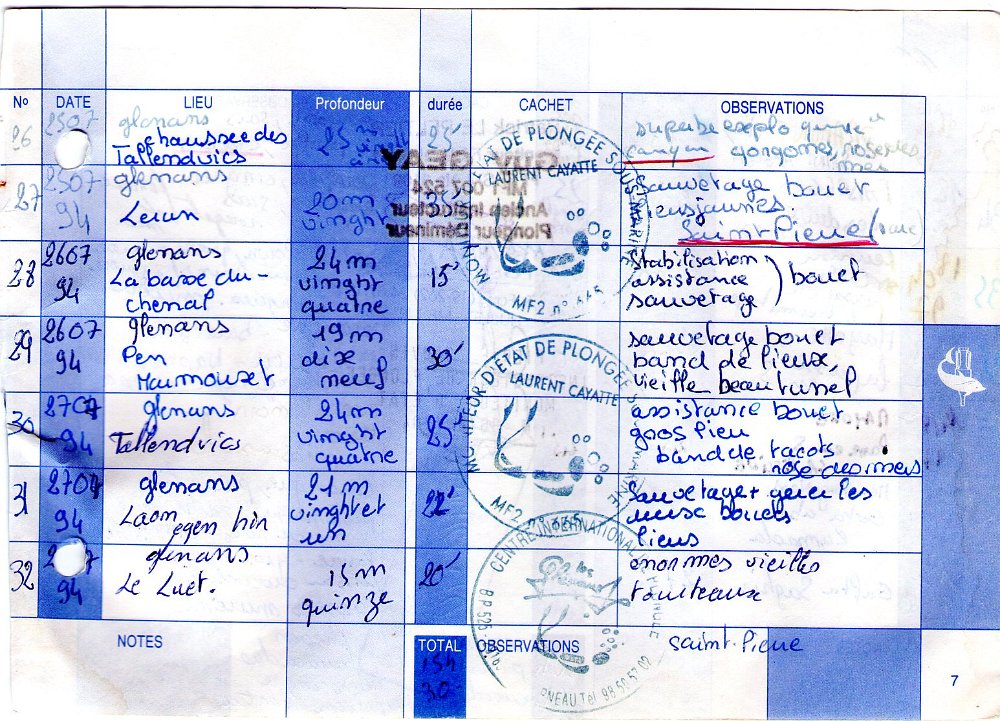 N° DATE LIEU Profondeur durée CACHET OBSERVATIONS
26 2507 glenans 25 m 25' superbe explo
chaussée des canyon gorgones,
Tallendvics
27 2507 glenans 20 m sauvetage bouet
94 Leiun vinght Saint Pierre
28 2607 glenans 24 m 15' stabilisation
94 La basse du- vinght assistance bouet
chenal quatre sauvetage
29 2607 glenans 19 m 30' sauvetage bouet
94 Pen dixe band de lieux,
Maumouxet neuf vieille beau tunel
30 2707 glenans 24 m 25' assistance bouet
94 Tallendvics vinght gros lieu
quatre band de tacots
rose des mers
31 2707 glenans 21 m 22' sauvetage +
94 Laon egen hin vinght et
un lieus
32 glenans 15 m 20' enormes vieilles
94 Le Luet. quinze tourteaux
NOTES TOTAL OBSERVATIONS saint-Pierre
15h
30
7
GUY GEAY
MF1 007 524
Ancien Instructeur
Plongeur Démineur
MONITEUR D'ÉTAT DE PLONGÉE SOUS-MARINE
LAURENT CAYATTE
MF2 n° 645
MONITEUR D'ÉTAT DE PLONGÉE SOUS-MARINE
LAURENT CAYATTE
MF2 n° 645
CENTRE INTERNATIONAL
les Glénans
BP 525
Tél 98 50 57 02